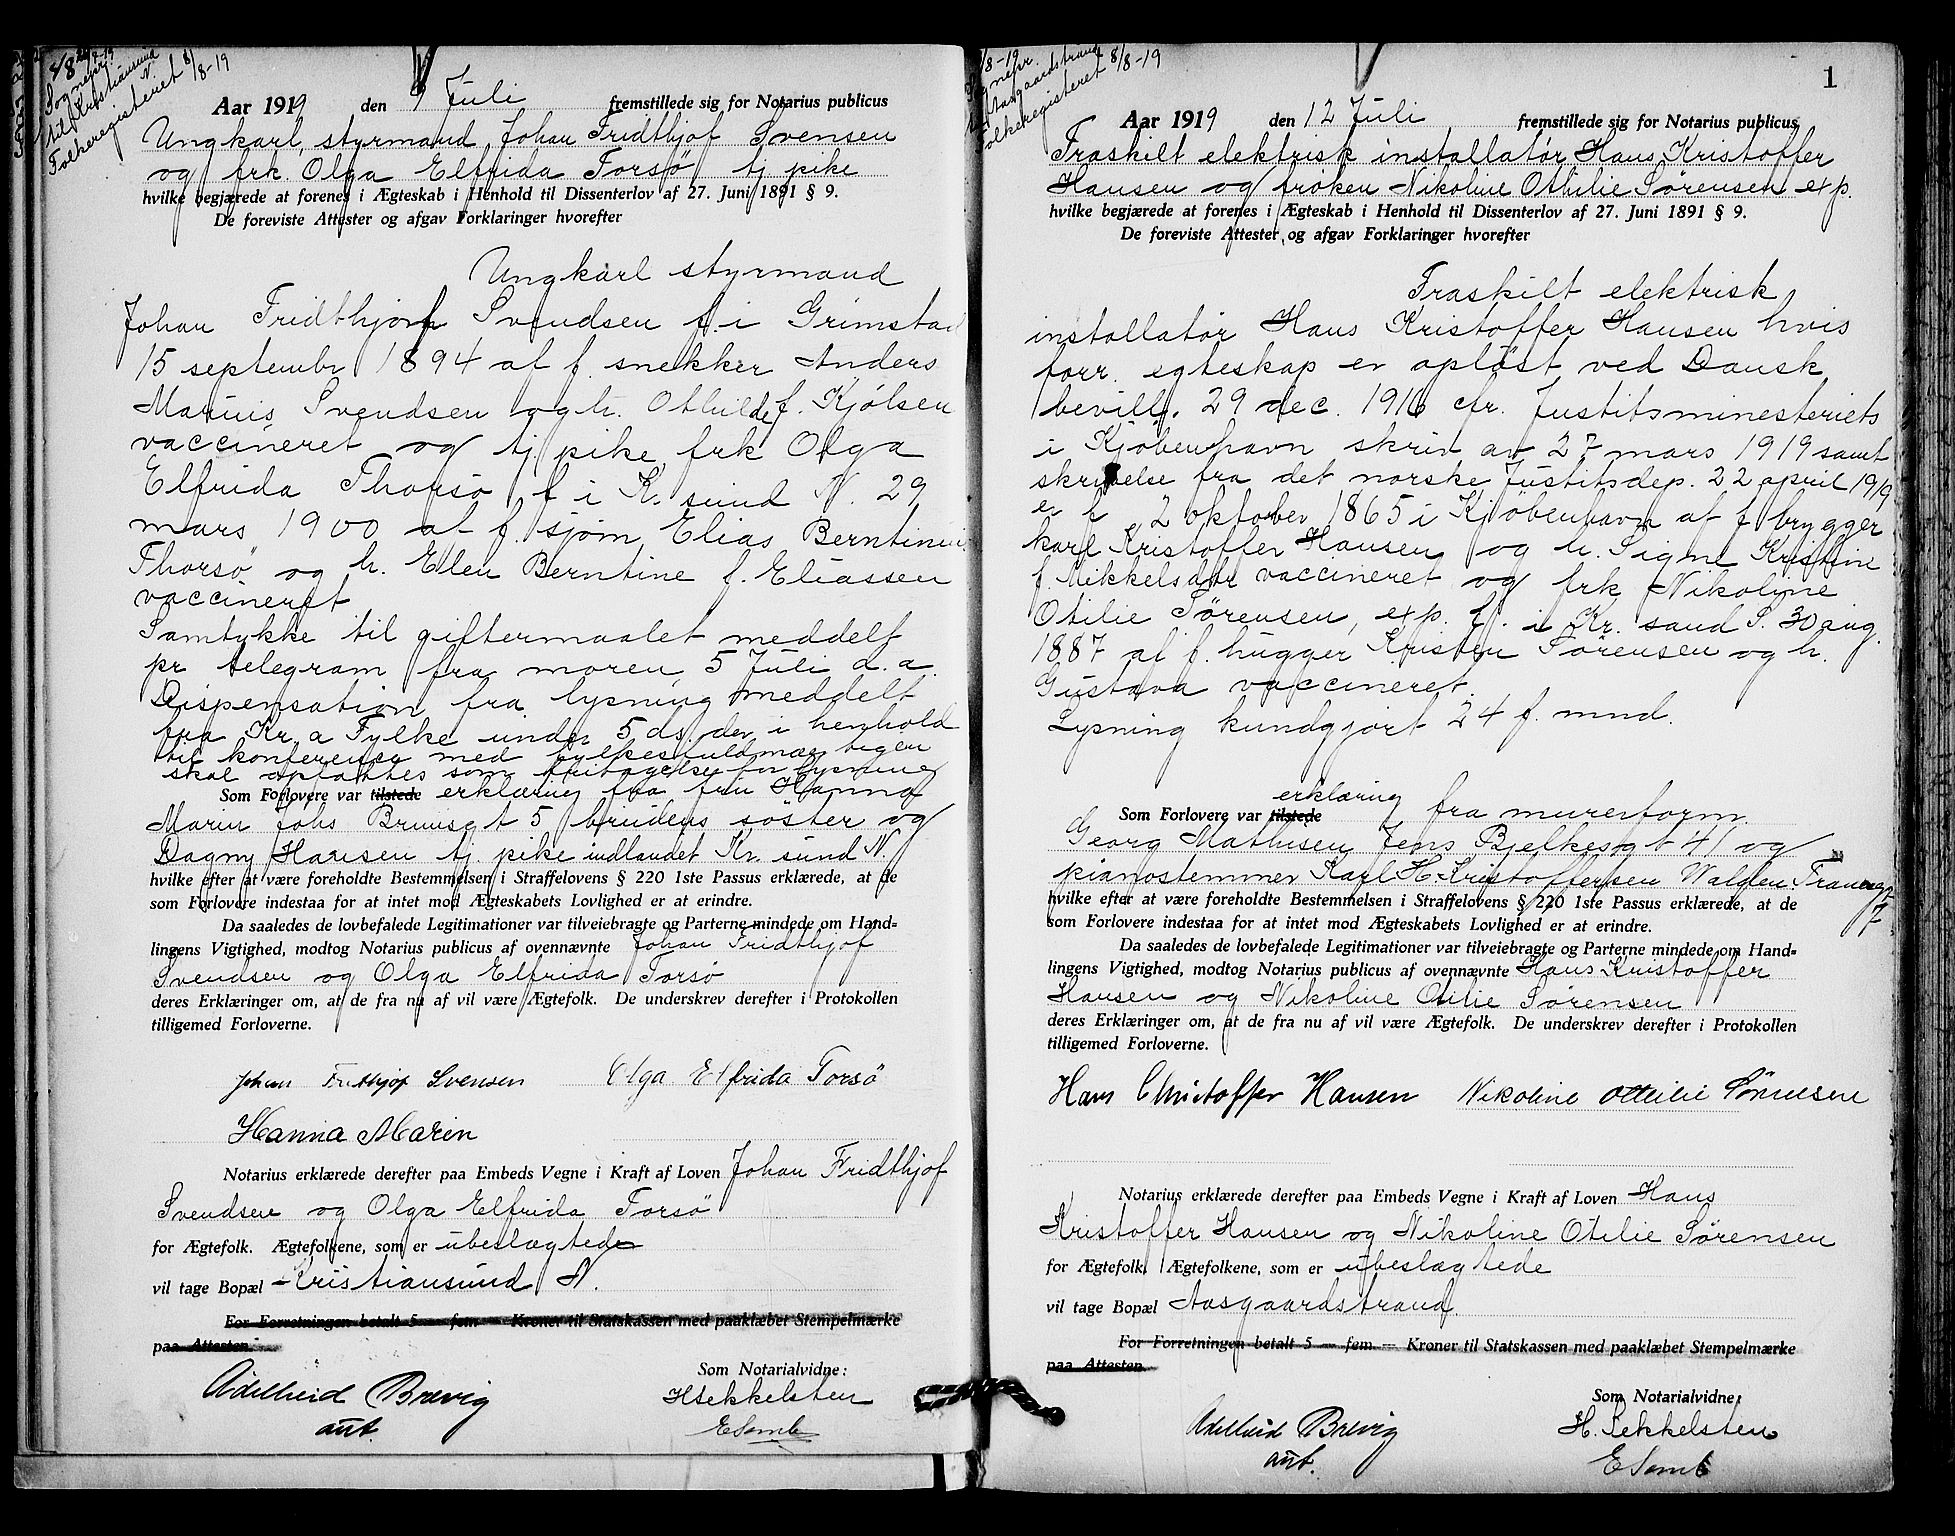 4/8-19
Sognepr.
til Kristiansund
N.
Folkeregisteret 8/8-19
Aar 1919 den 9 Juli fremstillede sig for Notarius publicus
Ungkarl, styrmand Johan Fridthjof Svensen
og frk. Olga Elfrida Torsø tj pike
hvilke begjærede at forenes i Ægteskab i Henhold til Dissenterlov af 27. Juni 1891 § 9.
De foreviste Attester og afgav Forklaringer hvorefter
Ungkarl styrmand
Johan Fridthjof Svendsen f. i Grimstad
15 septembr 1894 af f. snekker Anders
Marius Svendsen og h. Othilde f. Kjølsen
vaccineret og tj. pike frk Olga
Elfrida Thorsø f i K. sund N. 29
mars 1900 af f. sjøm. Elias Berntinus
Thorsø og h. Elen Berntine f. Eliassen
vaccineret
Samtykke til giftermaalet meddelt
pr telegram fra moren 5 Juli d. a.
Dispensation fra lysning meddelt
fra Kr. a Fylke under 5 ds. der i henhold
til konference med fylkesfuldmægtigen
skal opfattes som fritagelse for lysning
Som Forlovere var tilstede erklæring fra fru Hanna
Marin Johs Brunsgt 5 brudens søster og
Dagny Hansen tj. pike indlandet Kr. sund N.
hvilke efter at være foreholdte Bestemmelsen i Straffelovens § 220 1ste Passus erklærede, at de
som Forlovere indestaa for at intet mod Ægteskabets Lovlighed er at erindre.
Da saaledes de lovbefalede Legitimationer var tilveiebragte og Parterne mindede om Hand-
lingens Vigtighed, modtog Notarius publicus af ovennævnte Johan Fridthjof
Svendsen og Olga Elfrida Torsø
deres Erklæringer om, at de fra nu af vil være Ægtefolk. De underskrev derefter i Protokollen
tilligemed Forloverne.
Johan Fritthjof Svensen Olga Elfrida Torsø
Hanna Marin
Notarius erklærede derefter paa Embeds Vegne i Kraft af Loven Johan Fridthjof
Svendsen og Olga Elfrida Torsø
for Ægtefolk. Ægtefolkene, som er ubeslægtede
vil tage Bopæl Kristiansund N.
For Forretningen betalt 5 — fem — Kroner til Statskassen med paaklæbet Stempelmærke
paa Attesten.
Som Notarialvidne:
Adelheid Brevig
aut.
H Sekkelsten
E Somb
1
8/8-19
Sognepr.
Aasgaardstrand
Folkeregisteret 8/8-19
Aar 1919 den 12 Juli fremstillede sig for Notarius publicus
Fraskilt elektrisk installatør Hans Kristoffer
Hansen og frøken Nikoline Othilie Sørensen exp.
hvilke begjærede at forenes i Ægteskab i Henhold til Dissenterlov af 27. Juni 1891 § 9.
De foreviste Attester og afgav Forklaringer hvorefter
Fraskilt elektrisk
installatør Hans Kristoffer Hansen hvis
forr. egteskap er opløst ved Dansk
bevill. 29 dec. 1916 cfr. Justitsministeriets
i Kjøbenhavn skriv av 27 mars 1919 samt
skrivelse fra det norske Justitsdep. 22 april 1919
er f 2 oktober 1865 i Kjøbenhavn af f brygger
karl Kristoffer Hansen og h. Signe Kristine
f. Mikkelsdtr vaccineret og frk Nikoline
Otilie Sørensen, exp. f. i Kr. sand S. 30 aug.
1887 af f. hugger Kristen Sørensen og h.
Gustava vaccineret.
Lysning kundgjort 24 f. mnd.
Som Forlovere var tilstede erklæring fra murerform.
Georg Mathisen Jens Bjelkesgt 41 og
pianostemmer Karl H. Kristoffersen
hvilke efter at være foreholdte Bestemmelsen i Straffelovens § 220 1ste Passus erklærede, at de
som Forlovere indestaa for at intet mod Ægteskabets Lovlighed er at erindre.
Da saaledes de lovbefalede Legitimationer var tilveiebragte og Parterne mindede om Hand-
lingens Vigtighed, modtog Notarius publicus af ovennævnte Hans Kristoffer
Hansen og Nikoline Otilie Sørensen
deres Erklæringer om, at de fra nu af vil være Ægtefolk. De underskrev derefter i Protokollen
tilligemed Forloverne.
Hans Christoffer Hansen Nikoline Ottilie Sørensen
Notarius erklærede derefter paa Embeds Vegne i Kraft af Loven Hans
Kristoffer Hansen og Nikoline Otilie Sørensen
for Ægtefolk. Ægtefolkene, som er ubeslægtede
vil tage Bopæl Aasgaardstrand.
For Forretningen betalt 5 — fem — Kroner til Statskassen med paaklæbet Stempelmærke
paa Attesten.
Som Notarialvidne:
Adelheid Brevig
aut.
H. Sekkelsten
E Somb